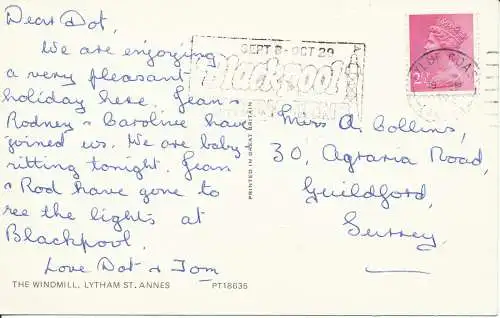 Dear Dot,
We are enjoying
a very pleasant
holiday here. Jean's
Rodney & Caroline have
joined us. We are baby
sitting tonight. Jean
& Rod have gone to
see the lights at
Blackpool.
Love Dot & Tom
THE WINDMILL, LYTHAM ST. ANNES PT18635
PRINTED IN GREAT BRITAIN
SEPT 8 - OCT 29
Blackpool
2½
Miss A. Collins,
30, Agraria Road,
Guildford,
Surrey.